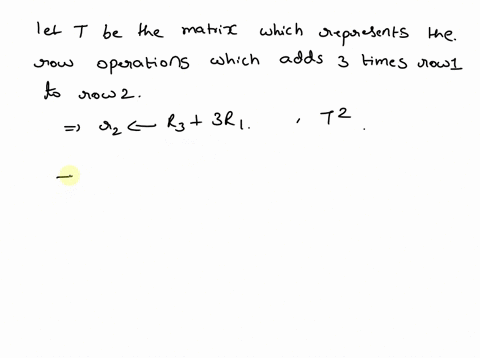 let T be the matrix which represents the.
row operations which adds 3 times row1
to row2.
⇒ r₂ ← R₃ + 3R₁. , T².